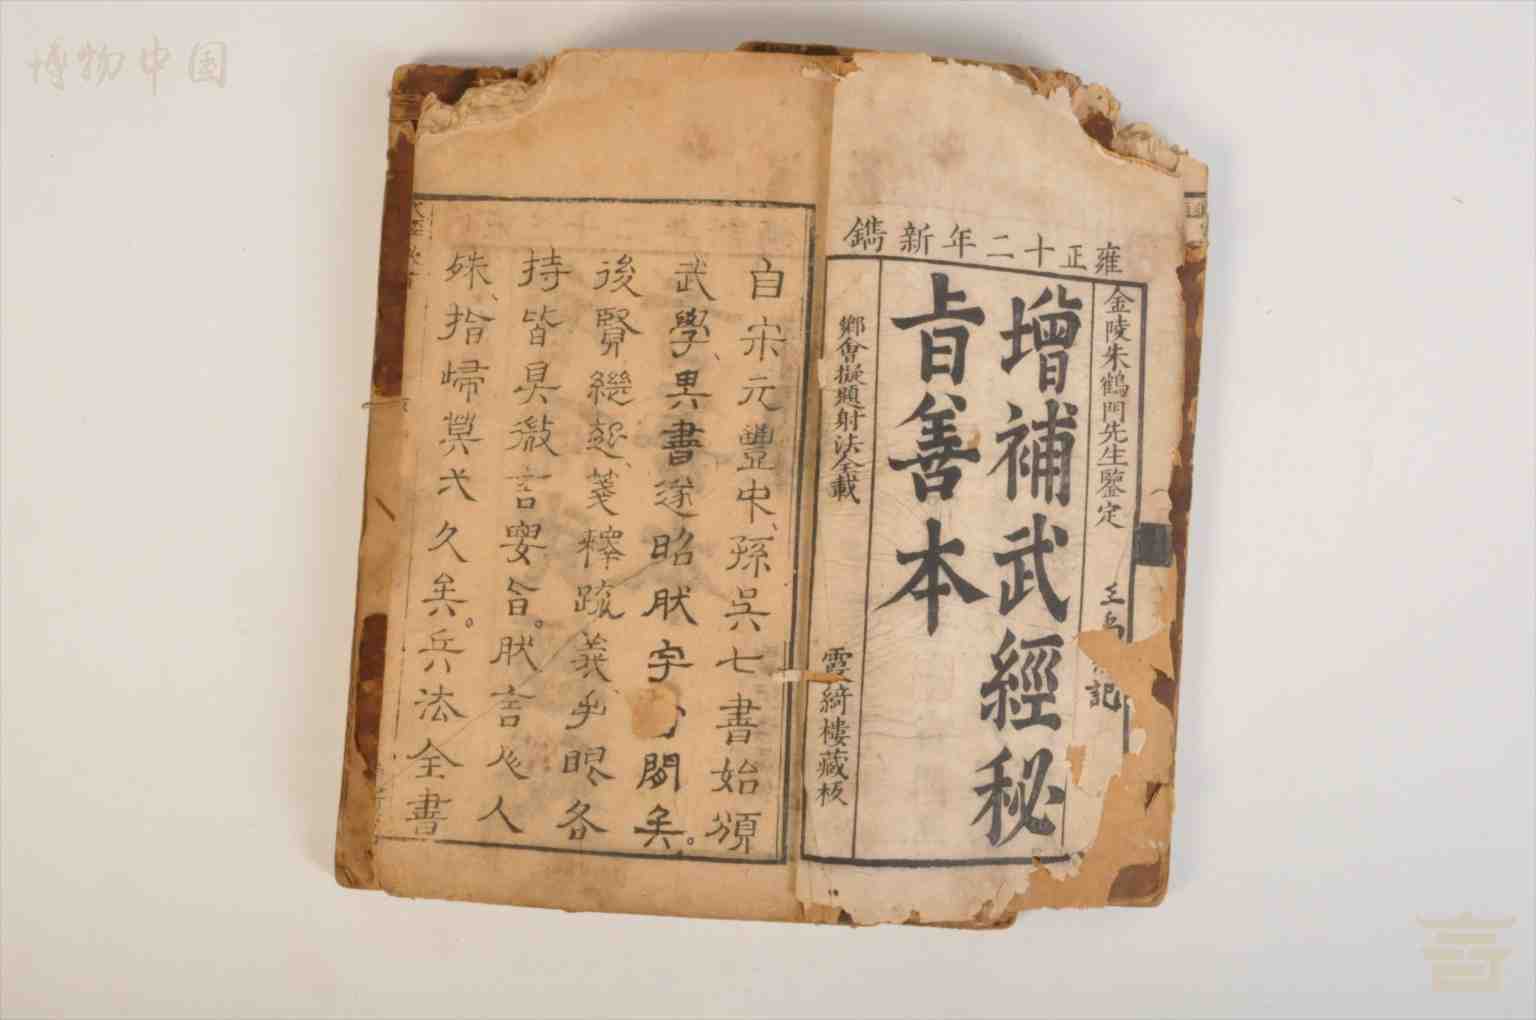 博物中国
雍正十二年新鐫
金陵朱鶴門先生鑒定
記
增補武經秘
旨善本
鄉會擬題射法全載
霞綺樓藏板
自宋元豐中、孫吳七書始頒
武學、異書遂昭肰字內閒矣。
後賢繼起、箋釋疏義、手眼各
持皆具微言要旨。肰言人人
殊、指歸莫弌久矣。兵法全書